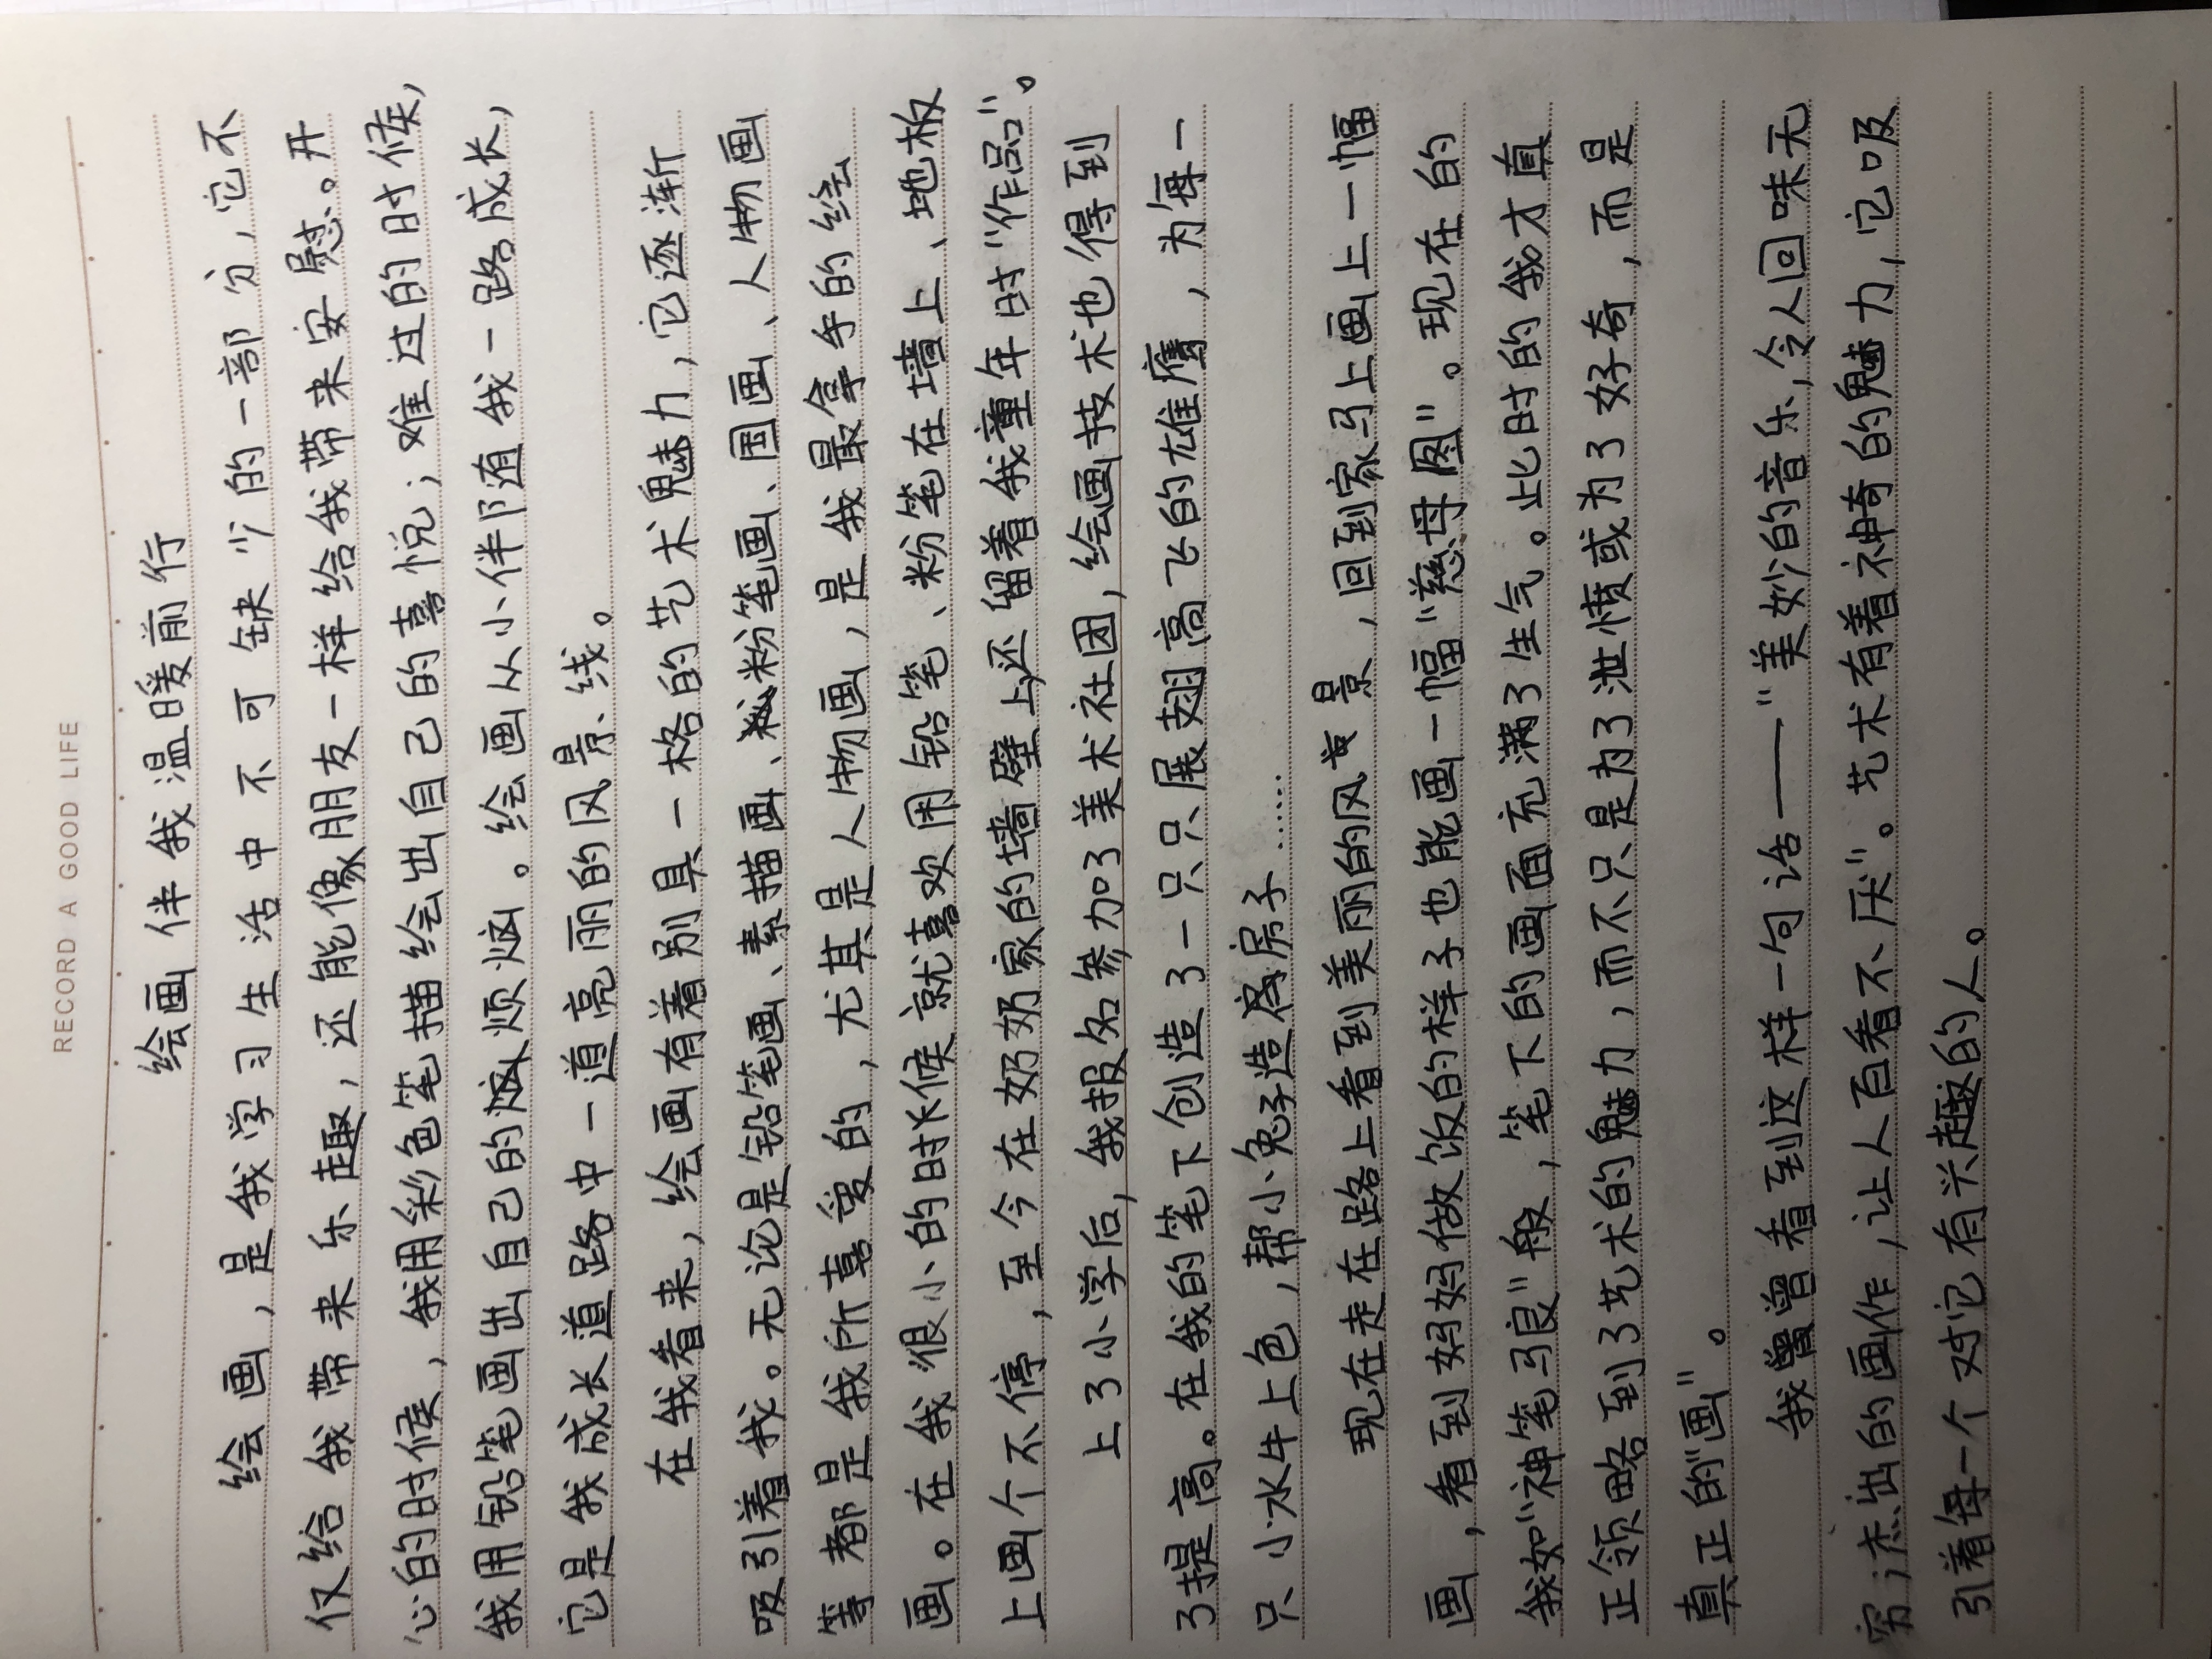 RECORD A GOOD LIFE
绘画伴我温暖前行
绘画，是我学习生活中不可缺少的一部分，它不
仅给我带来乐趣，还能像朋友一样给我带来安慰。开
心的时候，我用彩色笔描绘出自己的喜悦；难过的时候，
我用铅笔画出自己的烦恼。绘画从小伴随我一路成长，
它是我成长道路中一道亮丽的风景线。
在我看来，绘画有着别具一格的艺术魅力，它逐渐
吸引着我。无论是铅笔画、素描画、粉笔画、国画、人物画
等都是我所喜爱的，尤其是人物画，是我最拿手的绘
画。在我很小的时候就喜欢用铅笔、粉笔在墙上、地板
上画个不停，至今在奶奶家的墙壁上还留着我童年时“作品”。
上了小学后，我报名参加了美术社团，绘画技术也得到
了提高。在我的笔下创造了一只只展翅高飞的雄鹰，为每一
只小水牛上色，帮小兔子造房子……
现在走在路上看到美丽的风景，回到家马上画上一幅
画，看到妈妈做饭的样子也能画一幅“慈母图”。现在的
我如“神笔马良”般，笔下的画面充满了生气。此时的我才真
正领略到了艺术的魅力，而不只是为了泄愤或为了好奇，而是
真正的“画”。
我曾看到这样一句话——“美妙的音乐，令人回味无
穷；杰出的画作，让人百看不厌”。艺术有着神奇的魅力，它吸
引着每一个对它有兴趣的人。